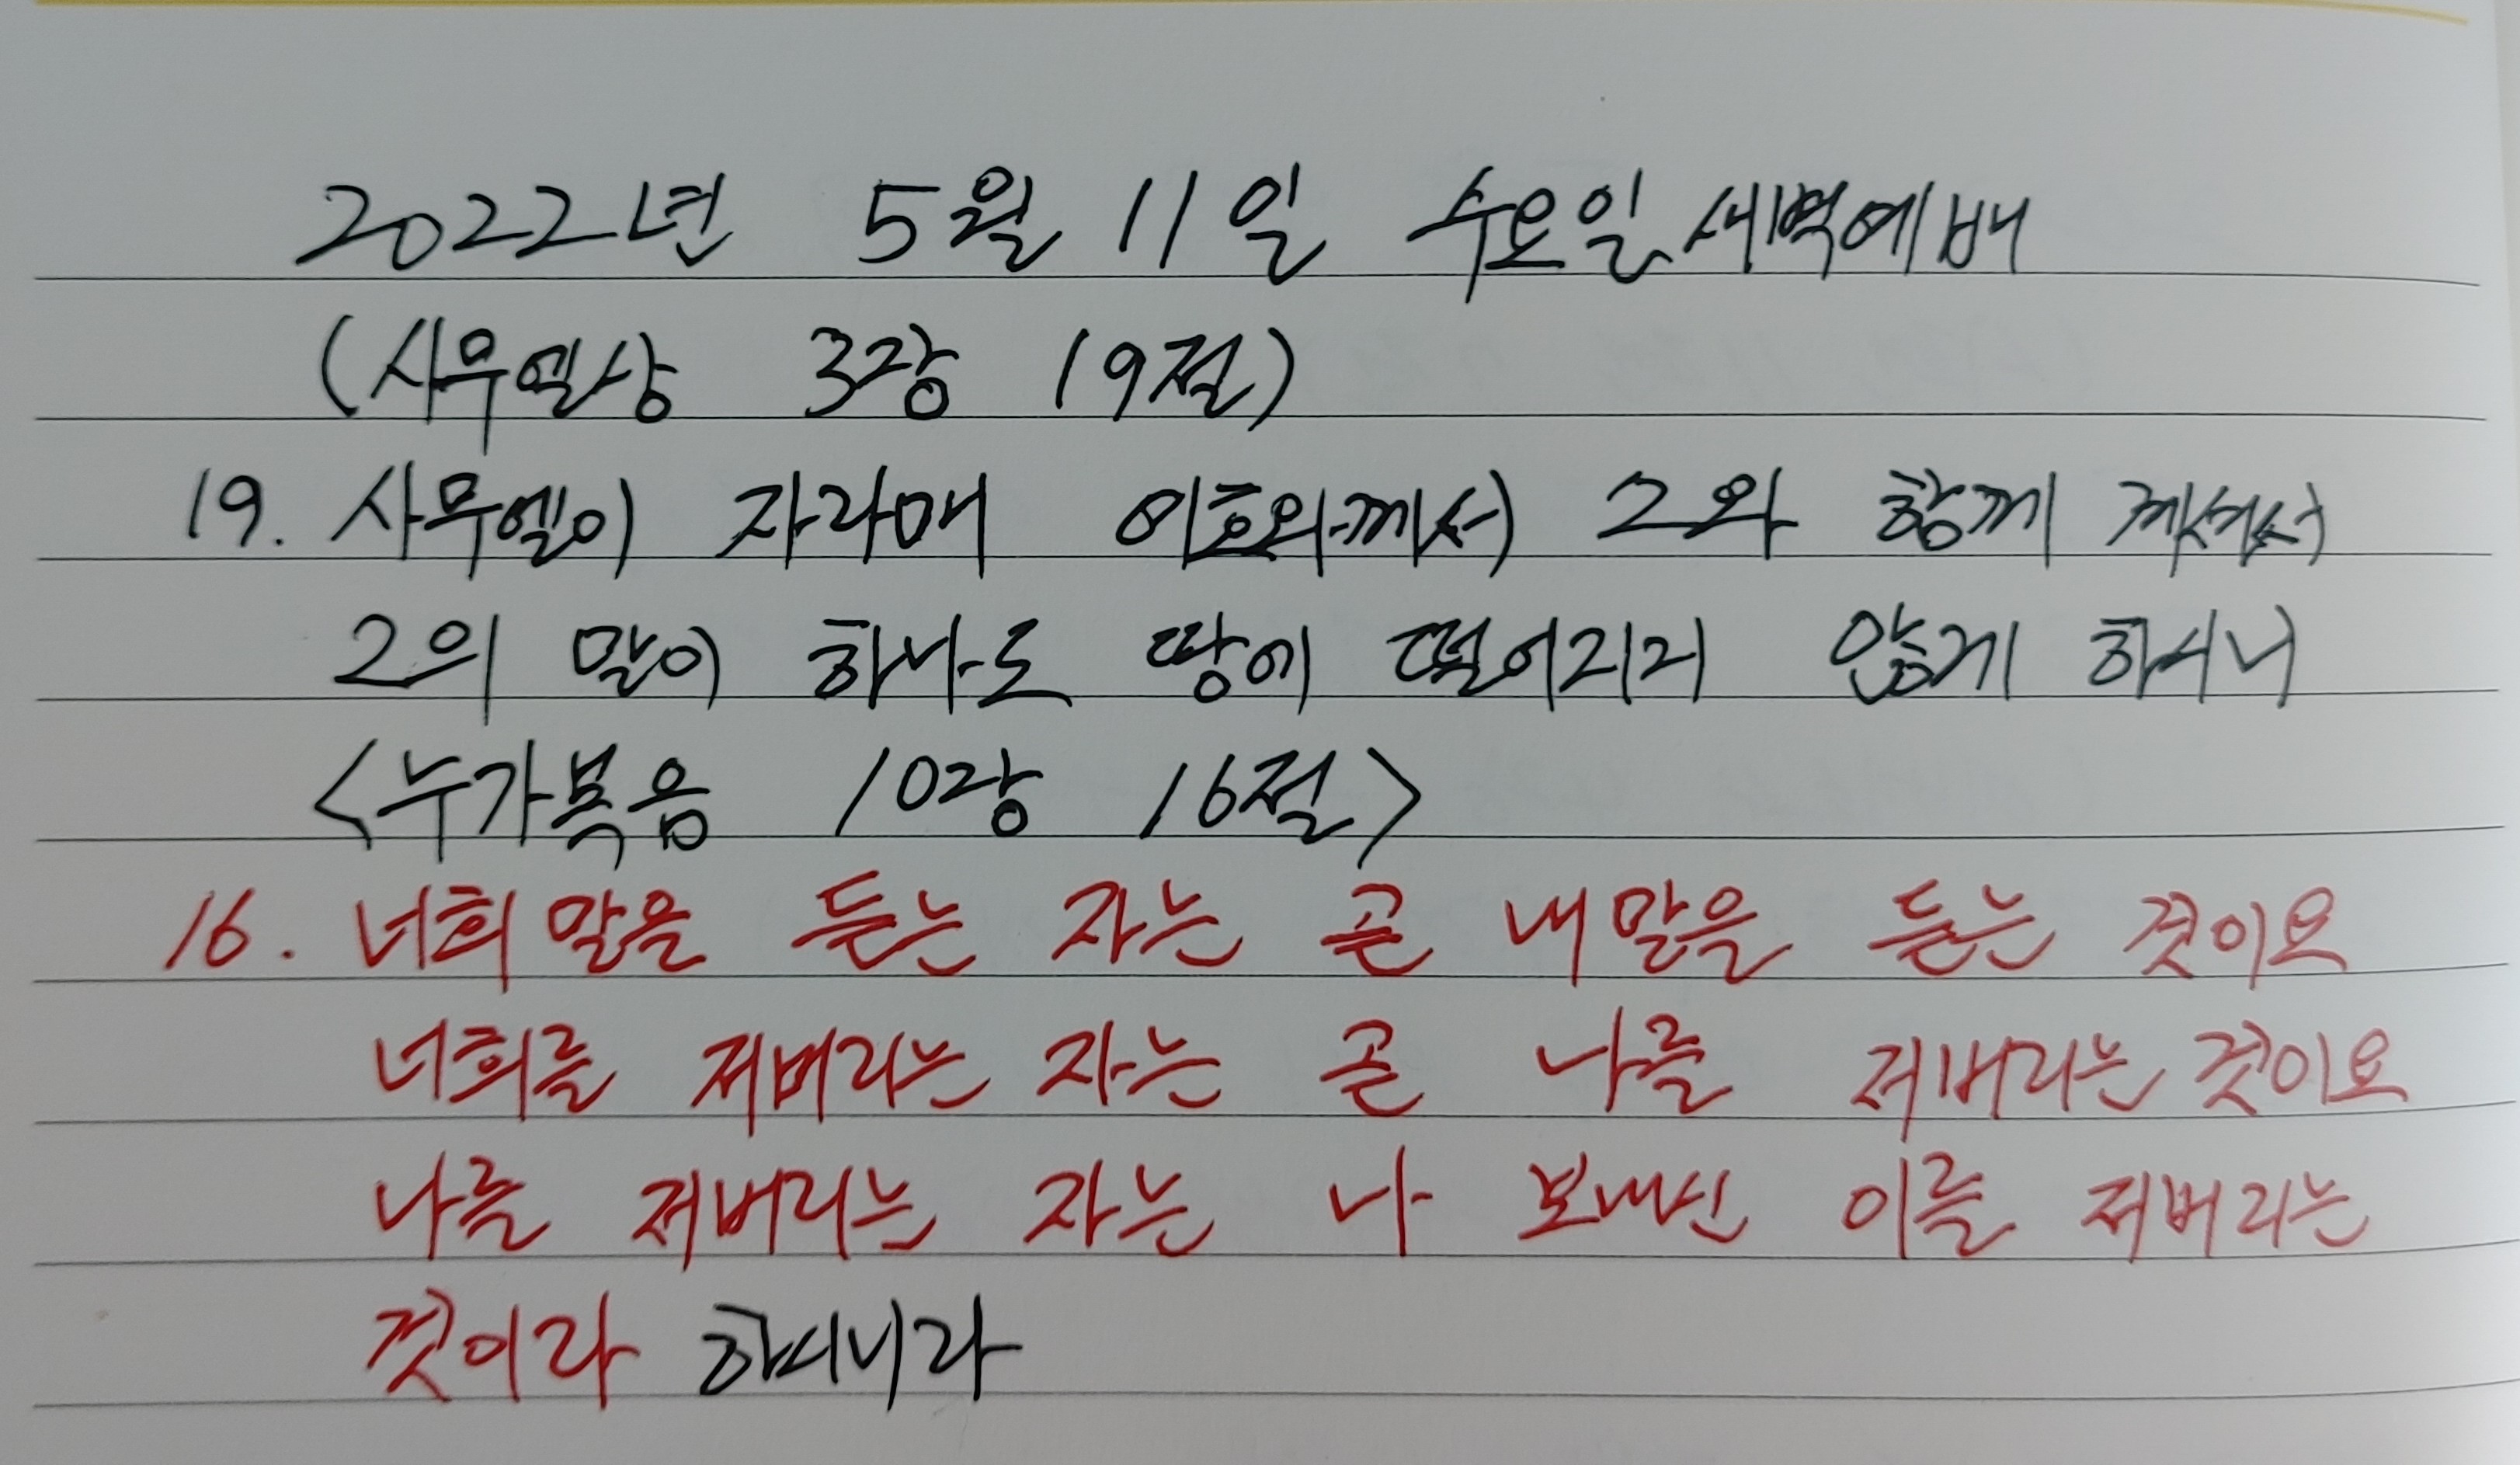 2022년 5월 11일 수요일새벽예배
(사무엘상 3장 19절)
19. 사무엘이 자라매 여호와께서 그와 함께 계셔서
그의 말이 하나도 땅에 떨어지지 않게 하시니
<누가복음 10장 16절>
16. 너희 말을 듣는 자는 곧 내 말을 듣는 것이요
너희를 저버리는 자는 곧 나를 저버리는 것이요
나를 저버리는 자는 나 보내신 이를 저버리는
것이라 하시니라